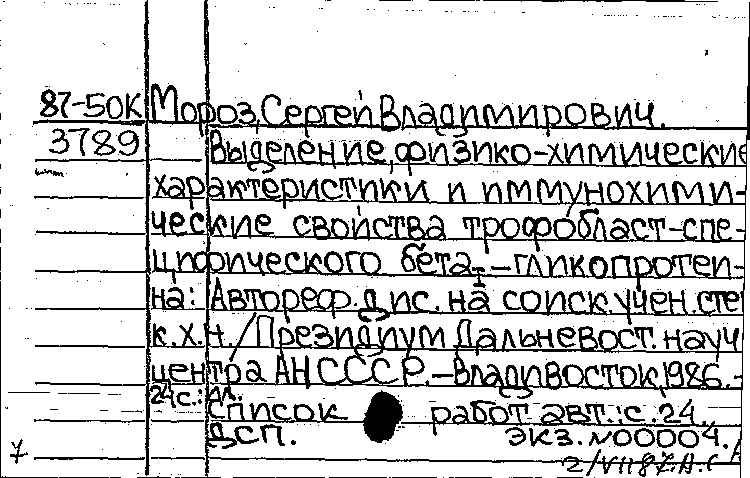 87-50К Мороз, Сергей Владимирович.
3789 Выделение, физико-химические
характеристики и иммунохими-
ческие свойства трофобласт-спе-
цифического бета₁-гликопротеи-
на: Автореф. дис. на соиск. учен. сте
к.х.н. / Президиум Дальневост. науч
центра АН СССР. - Владивосток, 1986. -
24 с.: ил.
Список работ авт.: с. 24.
ДСП. экз. N00004.
7 2/VII 87. А.С